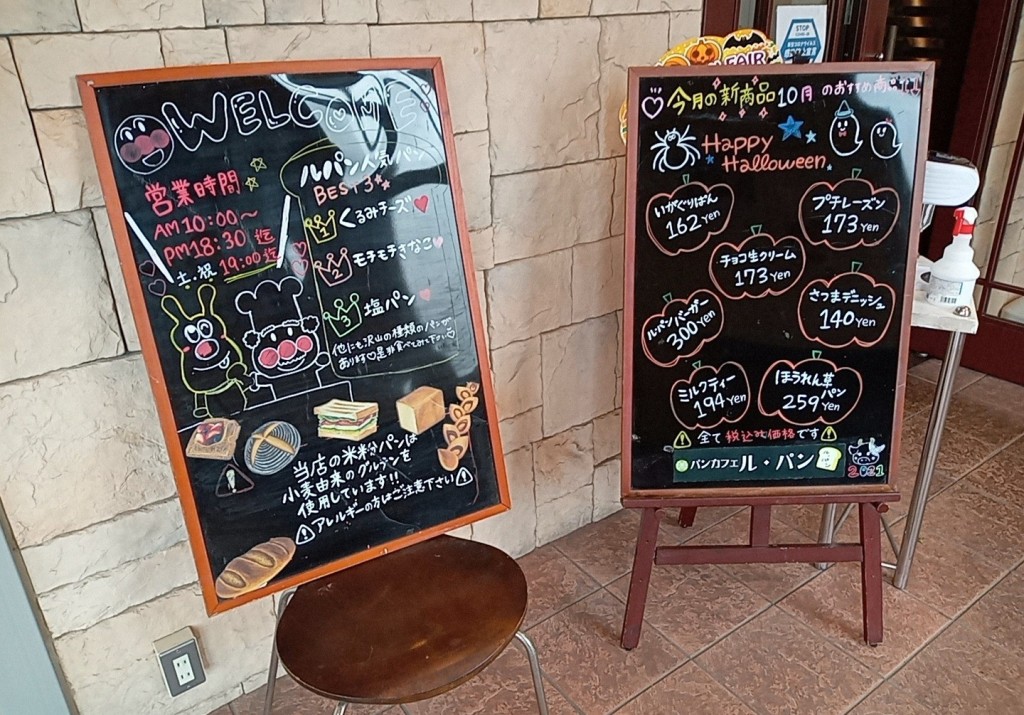 WELCOME
営業時間
AM10:00〜
PM18:30迄
土、祝 19:00迄
ルパン人気パン
BEST3
1 くるみチーズ
2 モチモチきなこ
3 塩パン
他にも沢山の種類のパンが
あります♡是非食べてみて下さい♡
当店の米粉パンは
小麦由来のグルテンを
使用しています!!
アレルギーの方はご注意下さい
FAIR
STOP
今月の新商品10月 のおすすめ商品
Happy
Halloween
いがぐりぱん
162Yen
プチレーズン
173Yen
チョコ生クリーム
173Yen
ルパンバーガー
300Yen
さつまデニッシュ
140Yen
ミルクティー
194Yen
ほうれん草
パン
259Yen
全て税込み価格です
パンカフェ ル・パン
2021